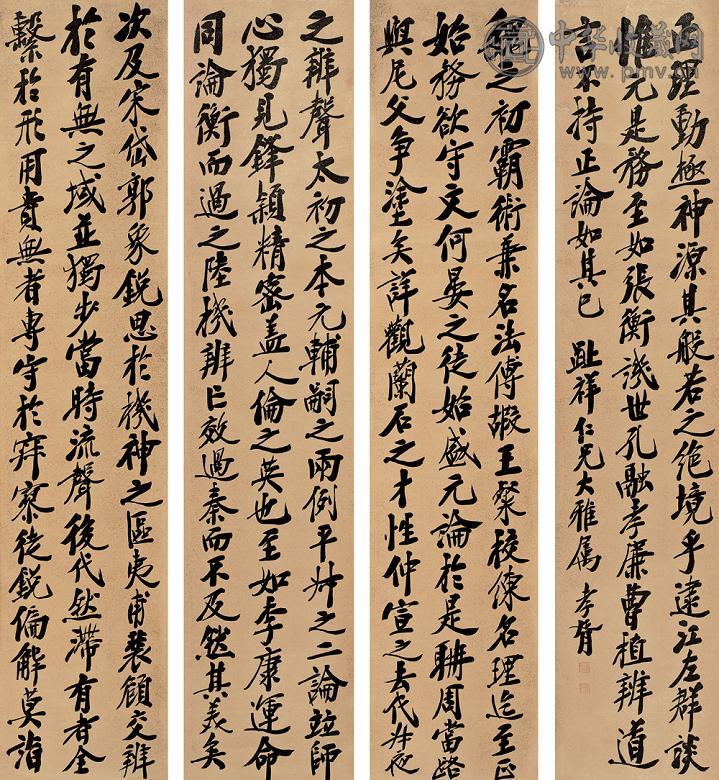 中华收藏网
www.pmv.cn
正理動極神源其般若之絕境乎逮江左群談
惟元是務至如張衡譏世孔融孝廉曹植辨道
言不持正論如其已 趾祥仁兄大雅属 孝胥
之初霸術兼名法傅嘏王粲校練名理迄至正
始務欲守文何晏之徒始盛元論於是聃周當路
與尼父爭塗矣詳觀蘭石之才性仲宣之去代叔夜
之辨聲太初之本元輔嗣之兩例平叔之二論竝師
心獨見鋒穎精密蓋人倫之英也至如李康運命
同論衡而過之陸機辨亡效過秦而不及然其美矣
次及宋岱郭象銳思於機神之區夷甫裴頠交辨
於有無之域並獨步當時流聲後代然滯有者全
繫於形用貴無者專守於寂寥徒銳偏解莫詣